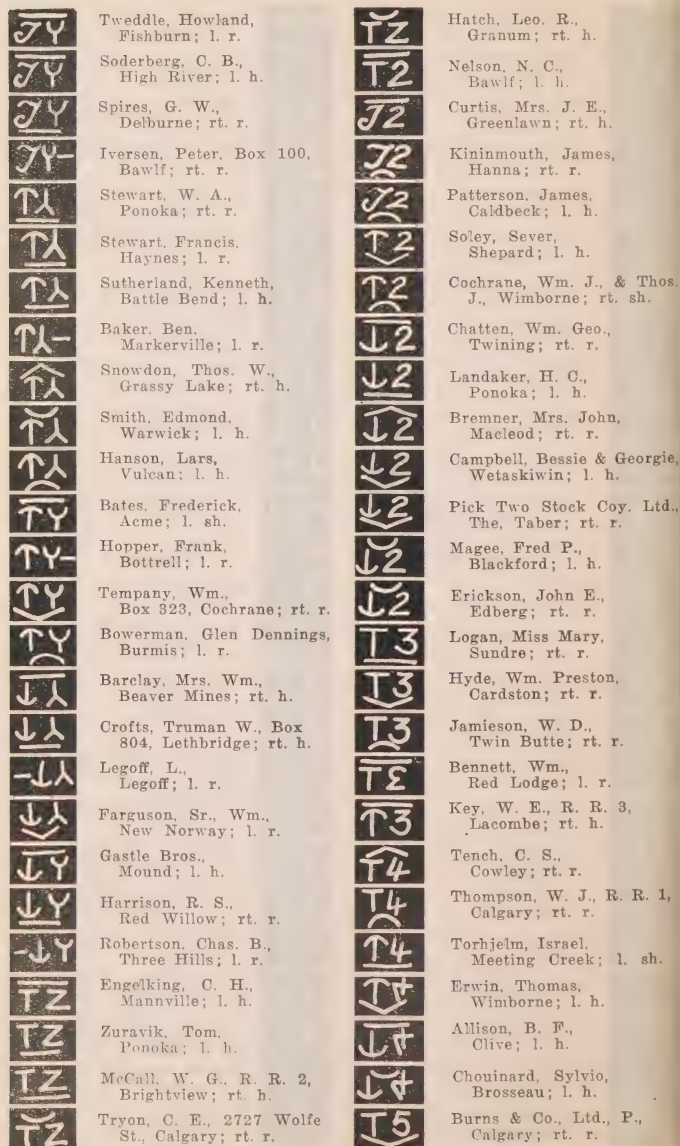 Tweddle, Howland,
Fishburn; l. r.
Soderberg, C. B.,
High River; l. h.
Spires, G. W.,
Delburne; rt. r.
Iversen, Peter, Box 100,
Bawlf; rt. r.
Stewart, W. A.,
Ponoka; rt. r.
Stewart, Francis,
Haynes; l. r.
Sutherland, Kenneth,
Battle Bend; l. h.
Baker, Ben,
Markerville; l. r.
Snowdon, Thos. W.,
Grassy Lake; rt. h.
Smith, Edmond,
Warwick; l. h.
Hanson, Lars,
Vulcan; l. h.
Bates, Frederick,
Acme; l. sh.
Hopper, Frank,
Bottrell; l. r.
Tempany, Wm.,
Box 323, Cochrane; rt. r.
Bowerman, Glen Dennings,
Burmis; l. r.
Barclay, Mrs. Wm.,
Beaver Mines; rt. h.
Crofts, Truman W., Box
804, Lethbridge; rt. h.
Legoff, L.,
Legoff; l. r.
Farguson, Sr., Wm.,
New Norway; l. r.
Gastle Bros.,
Mound; l. h.
Harrison, R. S.,
Red Willow; rt. r.
Robertson, Chas. B.,
Three Hills; l. r.
Engelking, C. H.,
Mannville; l. h.
Zuravik, Tom,
Ponoka; l. h.
McCall, W. G., R. R. 2,
Brightview; rt. h.
Tryon, C. E., 2727 Wolfe
St., Calgary; rt. r.
Hatch, Leo. R.,
Granum; rt. h.
Nelson, N. C.,
Bawlf; l. h.
Curtis, Mrs. J. E.,
Greenlawn; rt. h.
Kininmouth, James,
Hanna; rt. r.
Patterson, James,
Caldbeck; l. h.
Soley, Sever,
Shepard; l. h.
Cochrane, Wm. J., & Thos.
J., Wimborne; rt. sh.
Chatten, Wm. Geo.,
Twining; rt. r.
Landaker, H. C.,
Ponoka; l. h.
Bremner, Mrs. John,
Macleod; rt. r.
Campbell, Bessie & Georgie,
Wetaskiwin; l. h.
Pick Two Stock Coy. Ltd.,
The, Taber; rt. r.
Magee, Fred P.,
Blackford; l. h.
Erickson, John E.,
Edberg; rt. r.
Logan, Miss Mary,
Sundre; rt. r.
Hyde, Wm. Preston,
Cardston; rt. r.
Jamieson, W. D.,
Twin Butte; rt. r.
Bennett, Wm.,
Red Lodge; l. r.
Key, W. E., R. R. 3,
Lacombe; rt. h.
Tench, C. S.,
Cowley; rt. r.
Thompson, W. J., R. R. 1,
Calgary; rt. r.
Torhjelm, Israel,
Meeting Creek; l. sh.
Erwin, Thomas,
Wimborne; l. h.
Allison, B. F.,
Clive; l. h.
Chouinard, Sylvio,
Brosseau; l. h.
Burns & Co., Ltd., P.,
Calgary; rt. r.